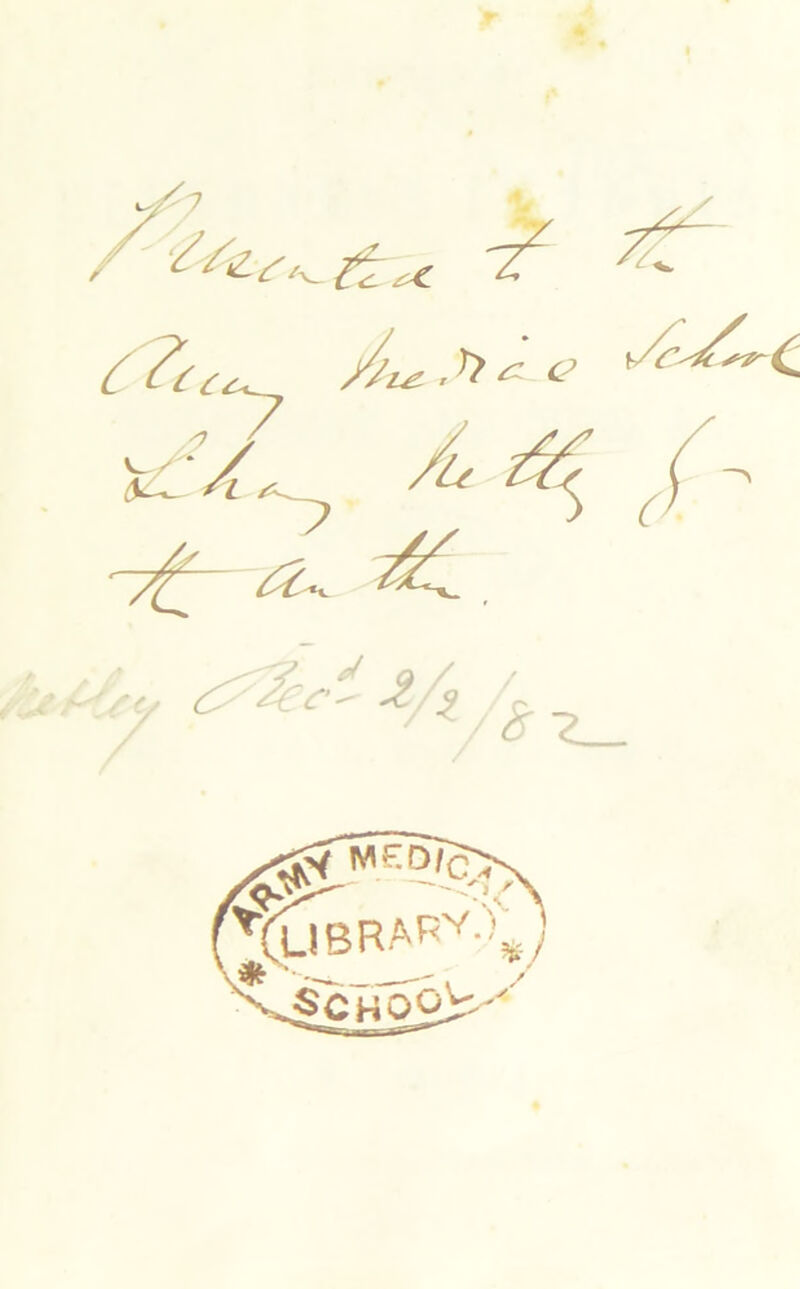 Presented to the
Army Medical School
Library Netley by
the Author.
Netley Recd 2/2/82
ARMY MEDICAL
LIBRARY.
* SCHOOL *